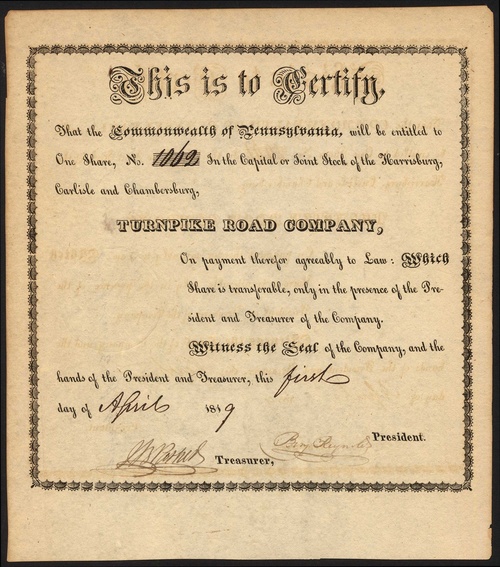 This is to Certify,
That the Commonwealth of Pennsylvania, will be entitled to
One Share, No. 1062 In the Capital or Joint Stock of the Harrisburg,
Carlisle and Chambersburg,
TURNPIKE ROAD COMPANY,
On payment therefor agreeably to Law: Which
Share is transferable, only in the presence of the Pre-
sident and Treasurer of the Company.
Witness the Seal of the Company, and the
hands of the President and Treasurer, this first
day of April 1819
President.
Treasurer,